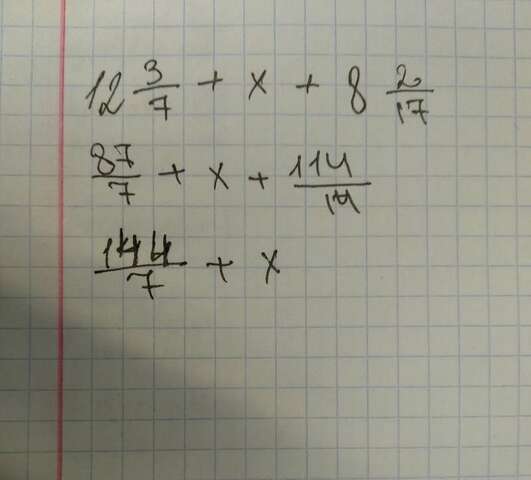 12 3/7 + x + 8 2/17
87/7 + x + 114/14
144/7 + x